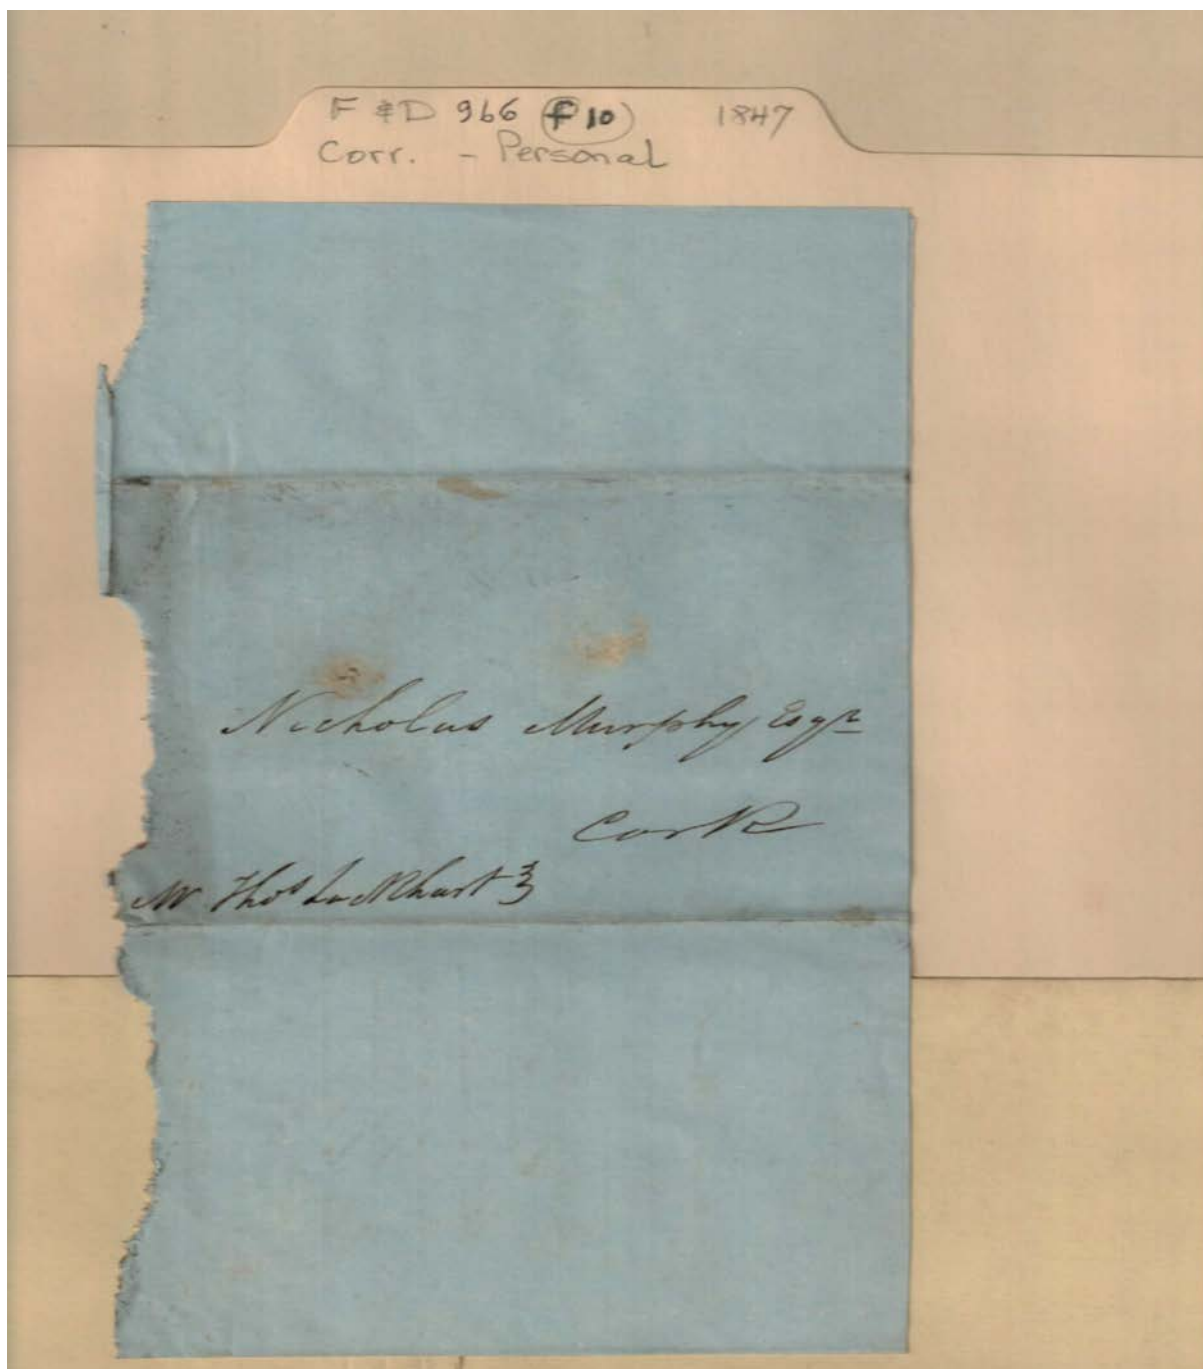 F & D 966 (f 10) 1847
Corr. - Personal
Nicholas Murphy Esqr
Cork
Mr Thos Lockhart